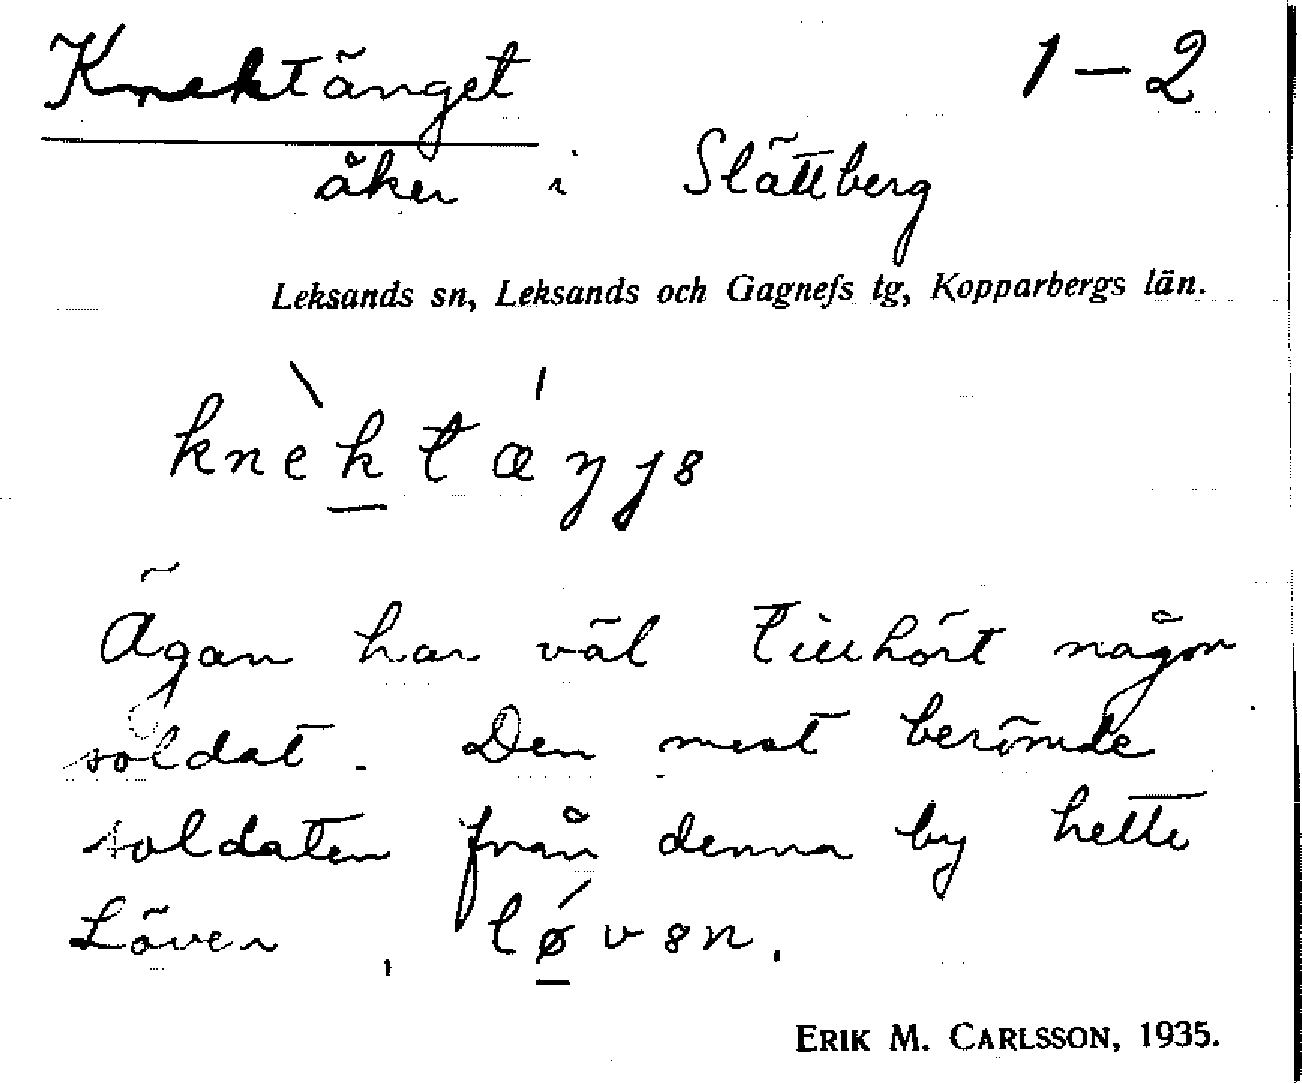 Knektänget 1-2
åker i Slättberg
Leksands sn, Leksands och Gagnefs tg, Kopparbergs län.
knèktǽŋɟ8
Ägan har väl tillhört någon
soldat. Den mest berömde
soldaten från denna by hette
Löven, lǿv8n.
ERIK M. CARLSSON, 1935.